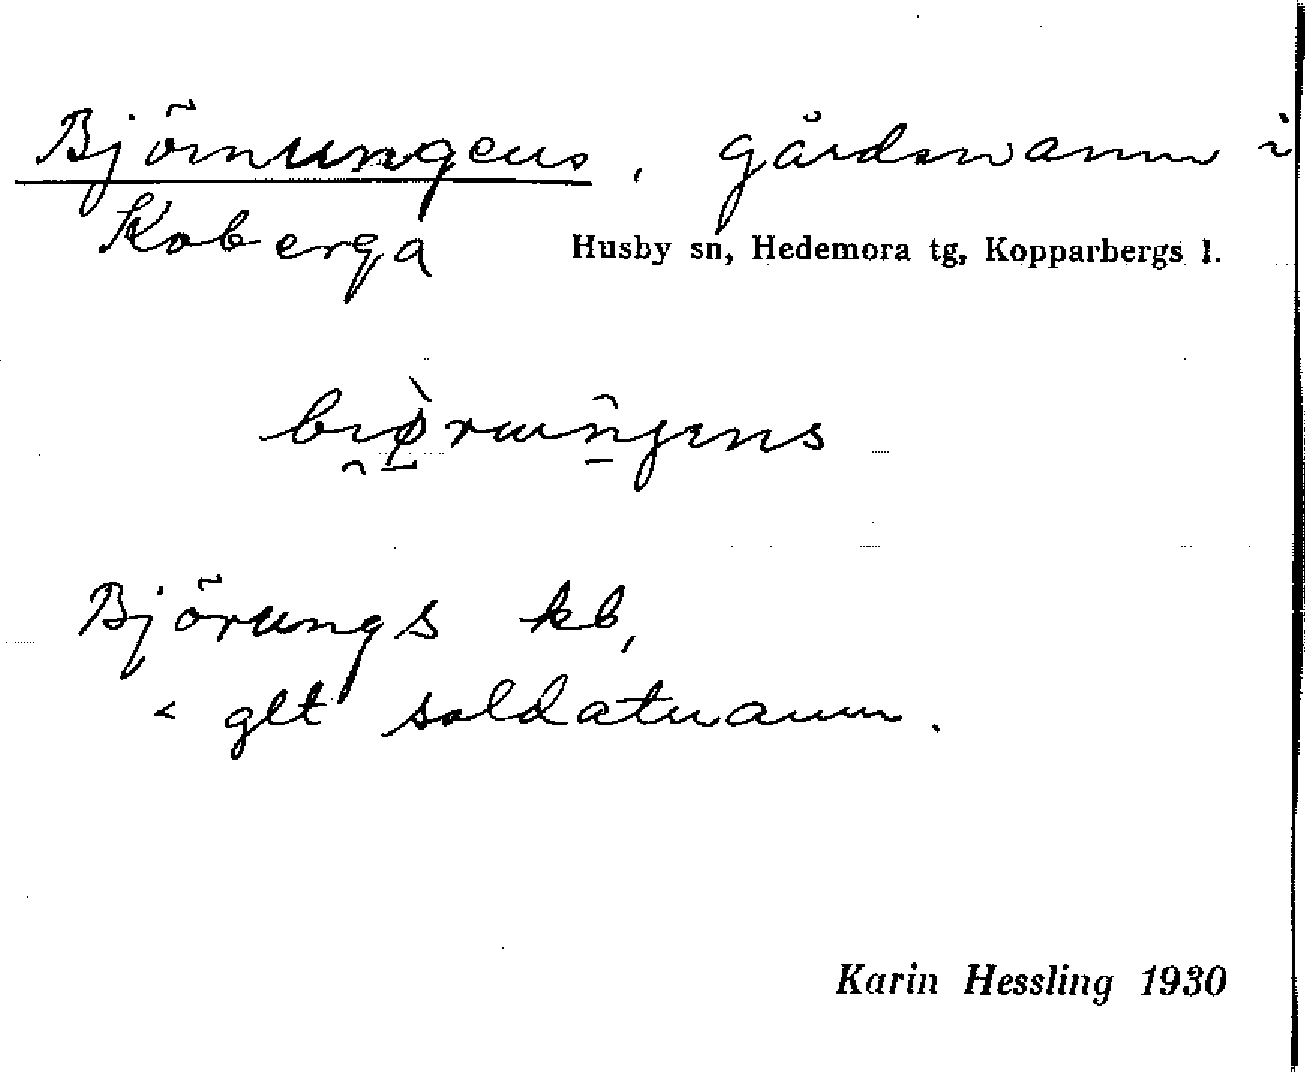 Björnungens, gårdsnamn i
Koberga Husby sn, Hedemora tg, Kopparbergs l.
Björungs kb,
< glt soldatnamn.
Karin Hessling 1930